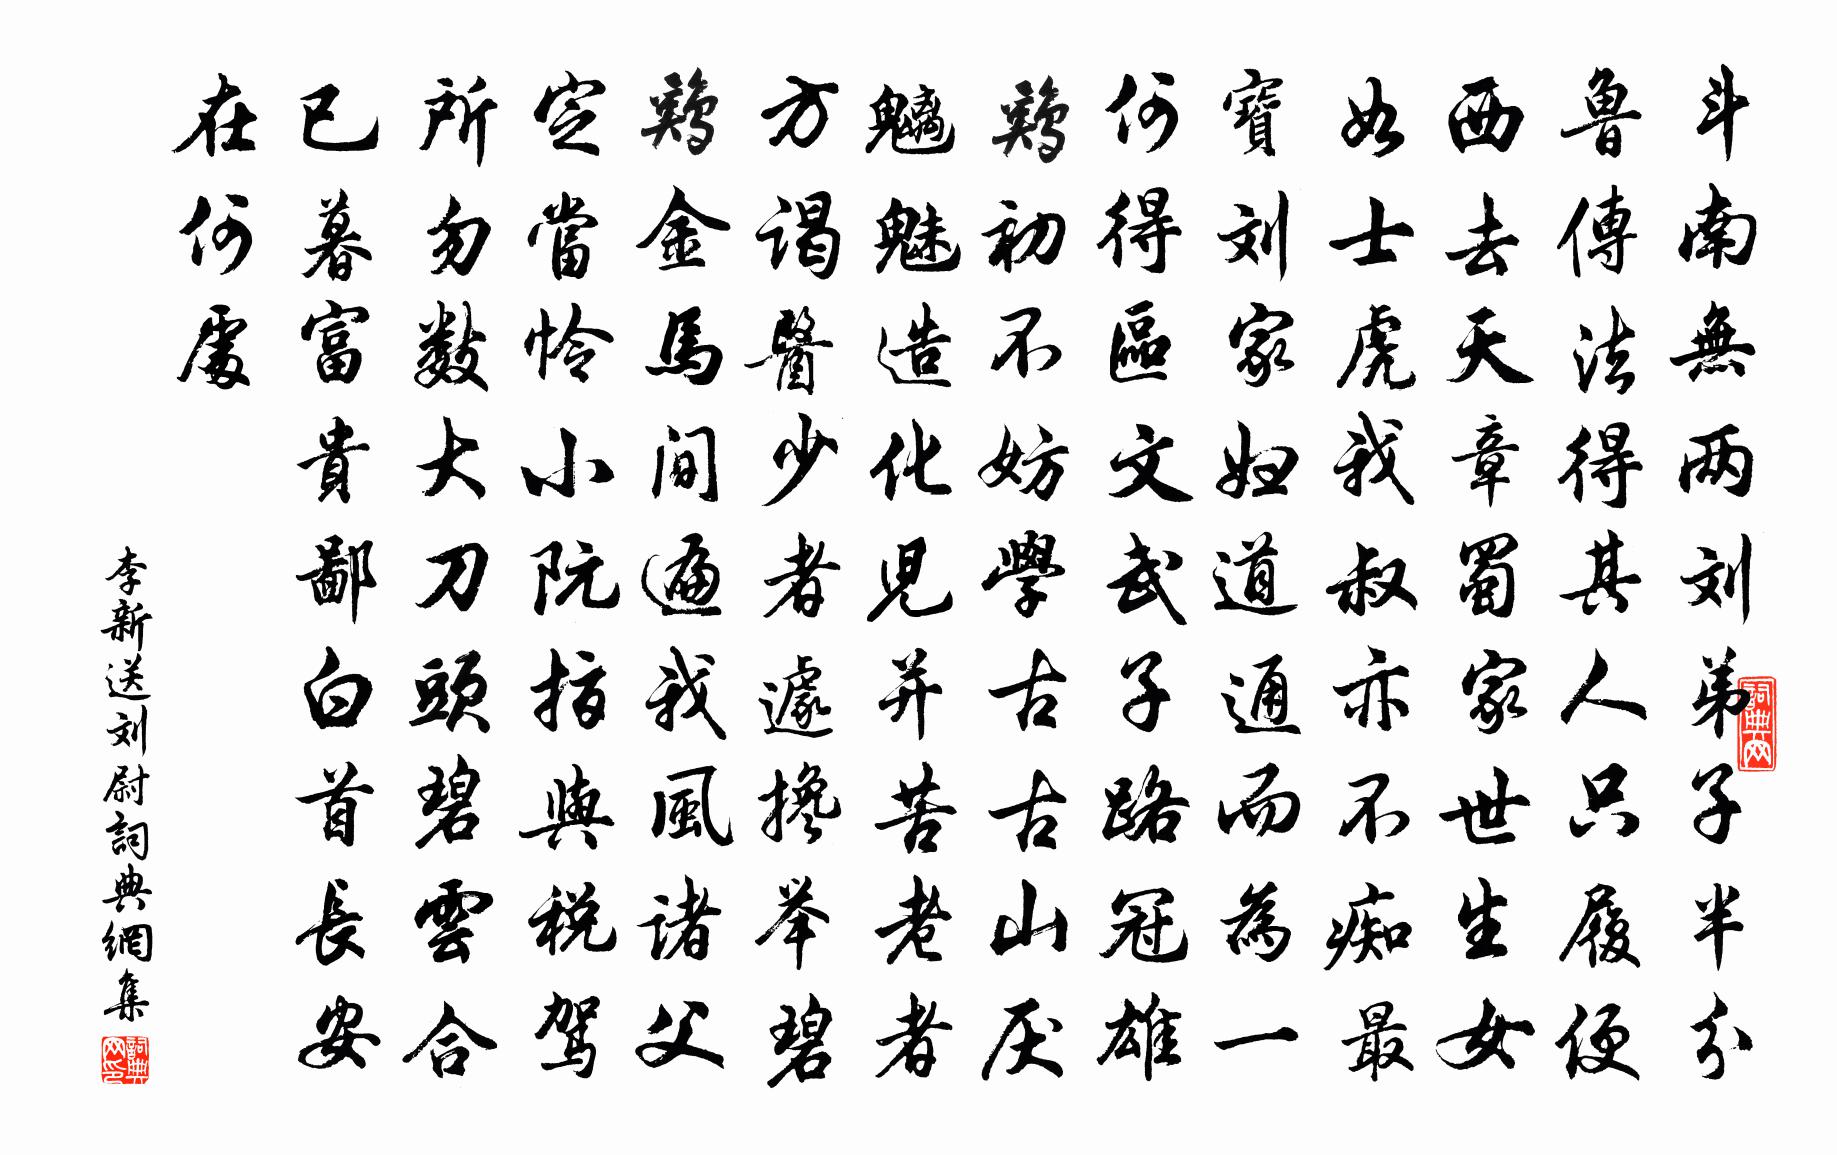 斗南無两刘弟子半分
魯傳法得其人只履便
西去天章蜀家世生女
如士虎我叔亦不痴最
寶刘家妞道通而為一
何得區文武子路冠雄
鷄初不妨學古古山灰
魑魅造化児并苦老者
方谒醫少者遽搀举碧
鷄金馬间遍我風诸父
定當怜小阮指與税駕
所勿数大刀頭碧雲合
已暮富貴鄙白首長安
在何處
李新送刘尉詞典網集
詞典网
詞典网印